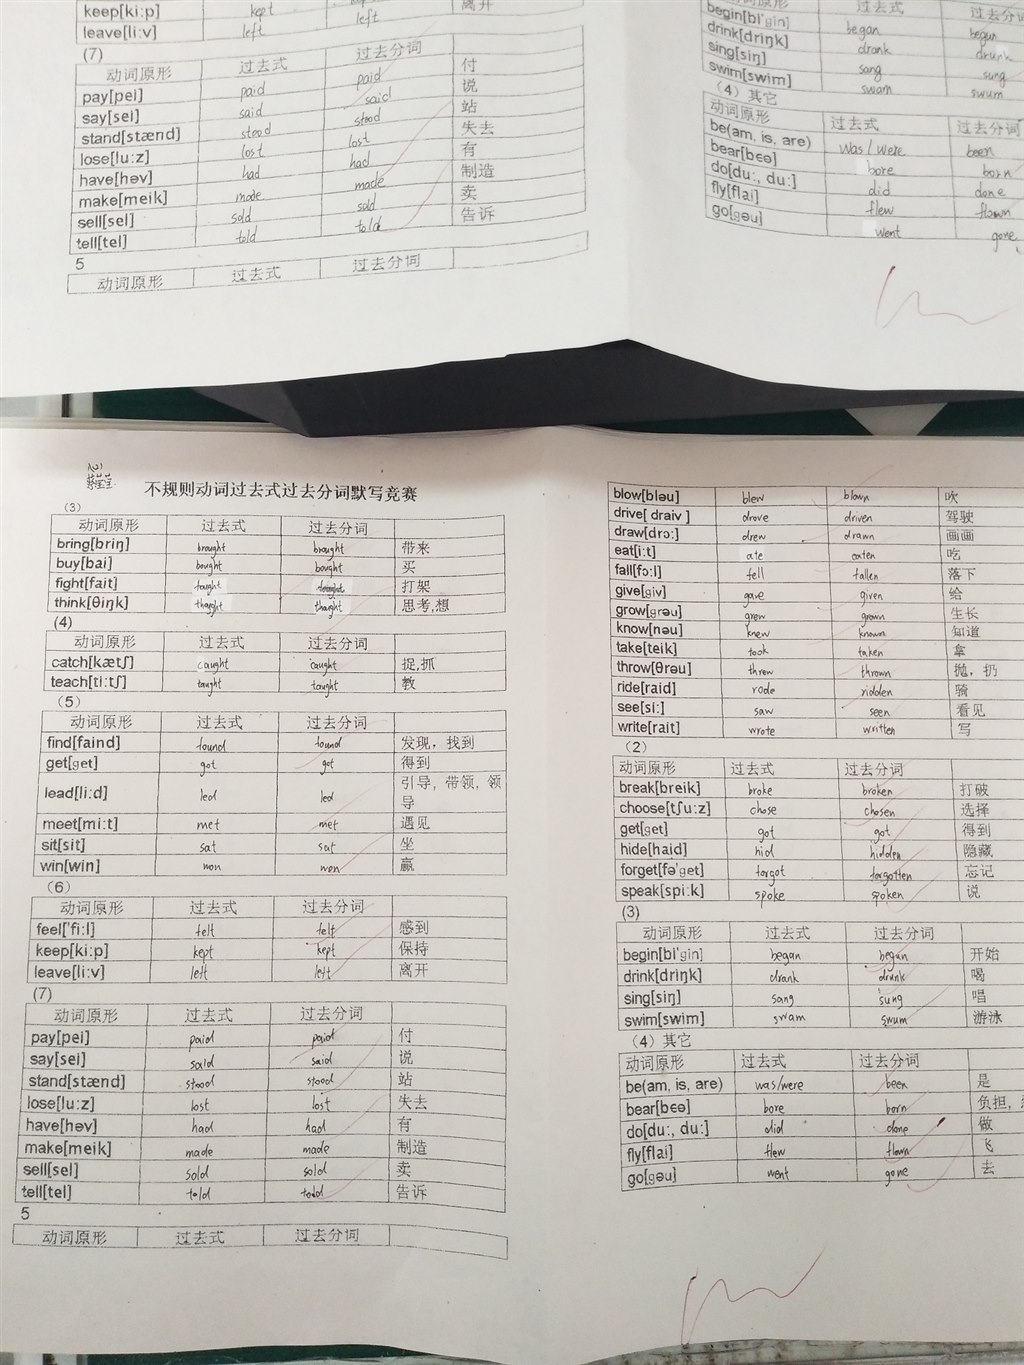 keep[ki:p] kept left 离开
leave[li:v] left
(7)
动词原形 过去式 过去分词
pay[pei] paid paid 付
say[sei] said said 说
stand[stænd] stood stood 站
lose[lu:z] lost lost 失去
have[həv] had had 有
make[meik] made made 制造
sell[sel] sold sold 卖
tell[tel] told told 告诉
5
动词原形 过去式 过去分词
动词原形 过去式 过去分词
begin[bi'gin] began begun
drink[driŋk] drank drunk
sing[siŋ] sang sung
swim[swim] swam swum
(4) 其它
动词原形 过去式 过去分词
be(am, is, are) was/were been
bear[bɛə] bore born
do[du:, du:] did done
fly[flai] flew flown
go[gəu] went gone
不规则动词过去式过去分词默写竞赛
(3)
动词原形 过去式 过去分词
bring[briŋ] brought brought 带来
buy[bai] bought bought 买
fight[fait] fought 打架
think[θiŋk] thought thought 思考,想
(4)
动词原形 过去式 过去分词
catch[kætʃ] caught caught 捉,抓
teach[ti:tʃ] taught taught 教
(5)
动词原形 过去式 过去分词
find[faind] found found 发现，找到
get[get] got got 得到
lead[li:d] led led 引导，带领，领导
meet[mi:t] met met 遇见
sit[sit] sat sat 坐
win[win] won won 赢
(6)
动词原形 过去式 过去分词
feel['fi:l] felt felt 感到
keep[ki:p] kept kept 保持
leave[li:v] left left 离开
(7)
动词原形 过去式 过去分词
pay[pei] paid paid 付
say[sei] said said 说
stand[stænd] stood stood 站
lose[lu:z] lost lost 失去
have[həv] had had 有
make[meik] made made 制造
sell[sel] sold sold 卖
tell[tel] told told 告诉
5
动词原形 过去式 过去分词
blow[bləu] blew blown 吹
drive[ draiv ] drove driven 驾驶
draw[drɔ:] drew drawn 画画
eat[i:t] ate eaten 吃
fall[fɔ:l] fell fallen 落下
give[giv] gave given 给
grow[grəu] grew grown 生长
know[nəu] knew known 知道
take[teik] took taken 拿
throw[θrəu] threw thrown 抛，扔
ride[raid] rode ridden 骑
see[si:] saw seen 看见
write[rait] wrote written 写
(2)
动词原形 过去式 过去分词
break[breik] broke broken 打破
choose[tʃu:z] chose chosen 选择
get[get] got got 得到
hide[haid] hid hidden 隐藏
forget[fə'get] forgot forgotten 忘记
speak[spi:k] spoke spoken 说
(3)
动词原形 过去式 过去分词
begin[bi'gin] began begun 开始
drink[driŋk] drank drunk 喝
sing[siŋ] sang sung 唱
swim[swim] swam swum 游泳
(4) 其它
动词原形 过去式 过去分词
be(am, is, are) was/were been 是
bear[bɛə] bore born 负担,
do[du:, du:] did done 做
fly[flai] flew flown 飞
go[gəu] went gone 去